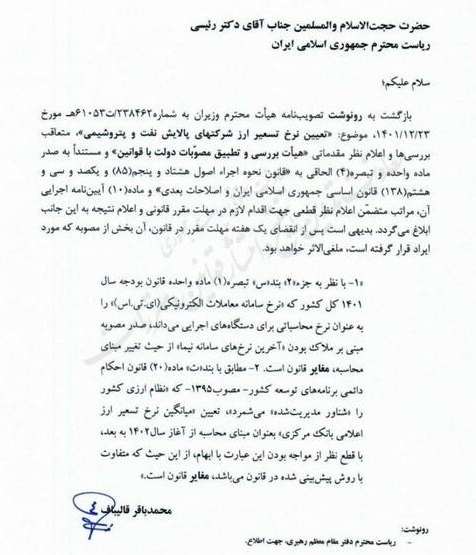 حضرت حجت‌الاسلام والمسلمین جناب آقای دکتر رئیسی
ریاست محترم جمهوری اسلامی ایران
سلام علیکم؛
بازگشت به رونوشت تصویب‌نامه هیأت محترم وزیران به شماره۲۳۸۴۶۲/ت۶۱۰۵۳هـ مورخ
۱۴۰۱/۱۲/۲۳، موضوع: «تعیین نرخ تسعیر ارز شرکتهای پالایش نفت و پتروشیمی»، متعاقب
بررسی‌ها و اعلام نظر مقدماتی «هیأت بررسی و تطبیق مصوّبات دولت با قوانین» و مستنداً به صدر
ماده واحده و تبصره(۴) الحاقی به «قانون نحوه اجراء اصول هشتاد و پنجم(۸۵) و یکصد و سی و
هشتم(۱۳۸) قانون اساسی جمهوری اسلامی ایران و اصلاحات بعدی» و ماده(۱۰) آیین‌نامه اجرایی
آن، مراتب متضمّن اعلام نظر قطعی جهت اقدام لازم در مهلت مقرر قانونی و اعلام نتیجه به این جانب
ابلاغ می‌گردد. بدیهی است پس از انقضای یک هفته مهلت مقرر در قانون، آن بخش از مصوبه که مورد
ایراد قرار گرفته است، ملغی‌الاثر خواهد بود.
«۱- با نظر به جزء«۲» بند«س» تبصره(۱) ماده واحده قانون بودجه سال
۱۴۰۱ کل کشور که «نرخ سامانه معاملات الکترونیکی(ای.تی.اس)» را
به عنوان نرخ محاسباتی برای دستگاه‌های اجرایی می‌داند، صدر مصوبه
مبنی بر ملاک بودن «آخرین نرخ‌های سامانه نیما» از حیث تغییر مبنای
محاسبه، مغایر قانون است. ۲- مطابق با بند«ت» ماده(۲۰) قانون احکام
دائمی برنامه‌های توسعه کشور- مصوب۱۳۹۵- که «نظام ارزی کشور
را «شناور مدیریت‌شده» می‌شمرد»، تعیین «میانگین نرخ تسعیر ارز
اعلامی بانک مرکزی» بعنوان مبنای محاسبه از آغاز سال۱۴۰۲ به بعد،
با قطع نظر از مواجه بودن این عبارت با ابهام، از این حیث که متفاوت
با روش پیش‌بینی شده در قانون می‌باشد، مغایر قانون است.»
محمدباقر قالیباف
رونوشت:
- ریاست محترم دفتر مقام معظم رهبری، جهت اطلاع.